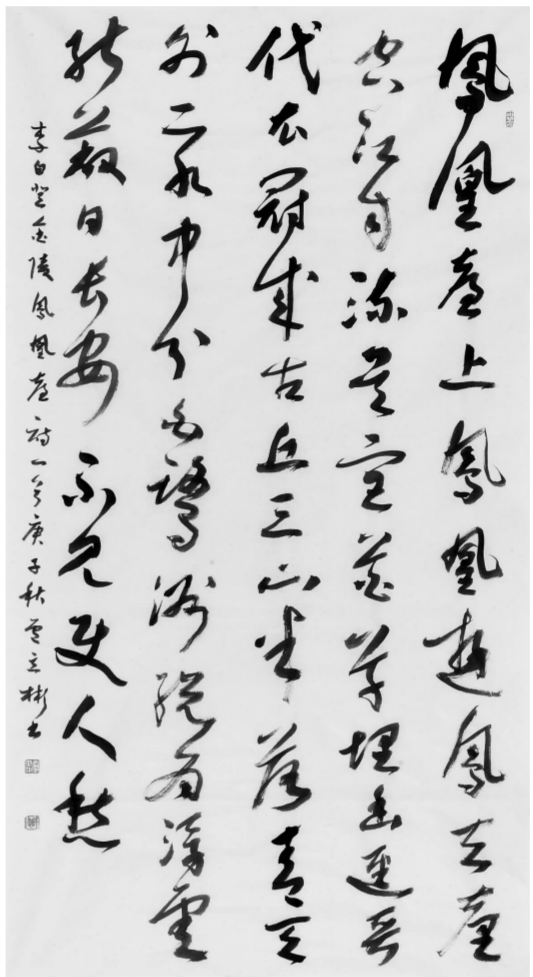 鳳凰臺上鳳凰遊鳳去臺
空江自流吴宫花草埋幽逕晋
代衣冠成古丘三山半落青天
外二水中分白鷺洲總為浮雲
能蔽日長安不見使人愁
李白登金陵鳳凰臺詩一首庚子秋立彬书